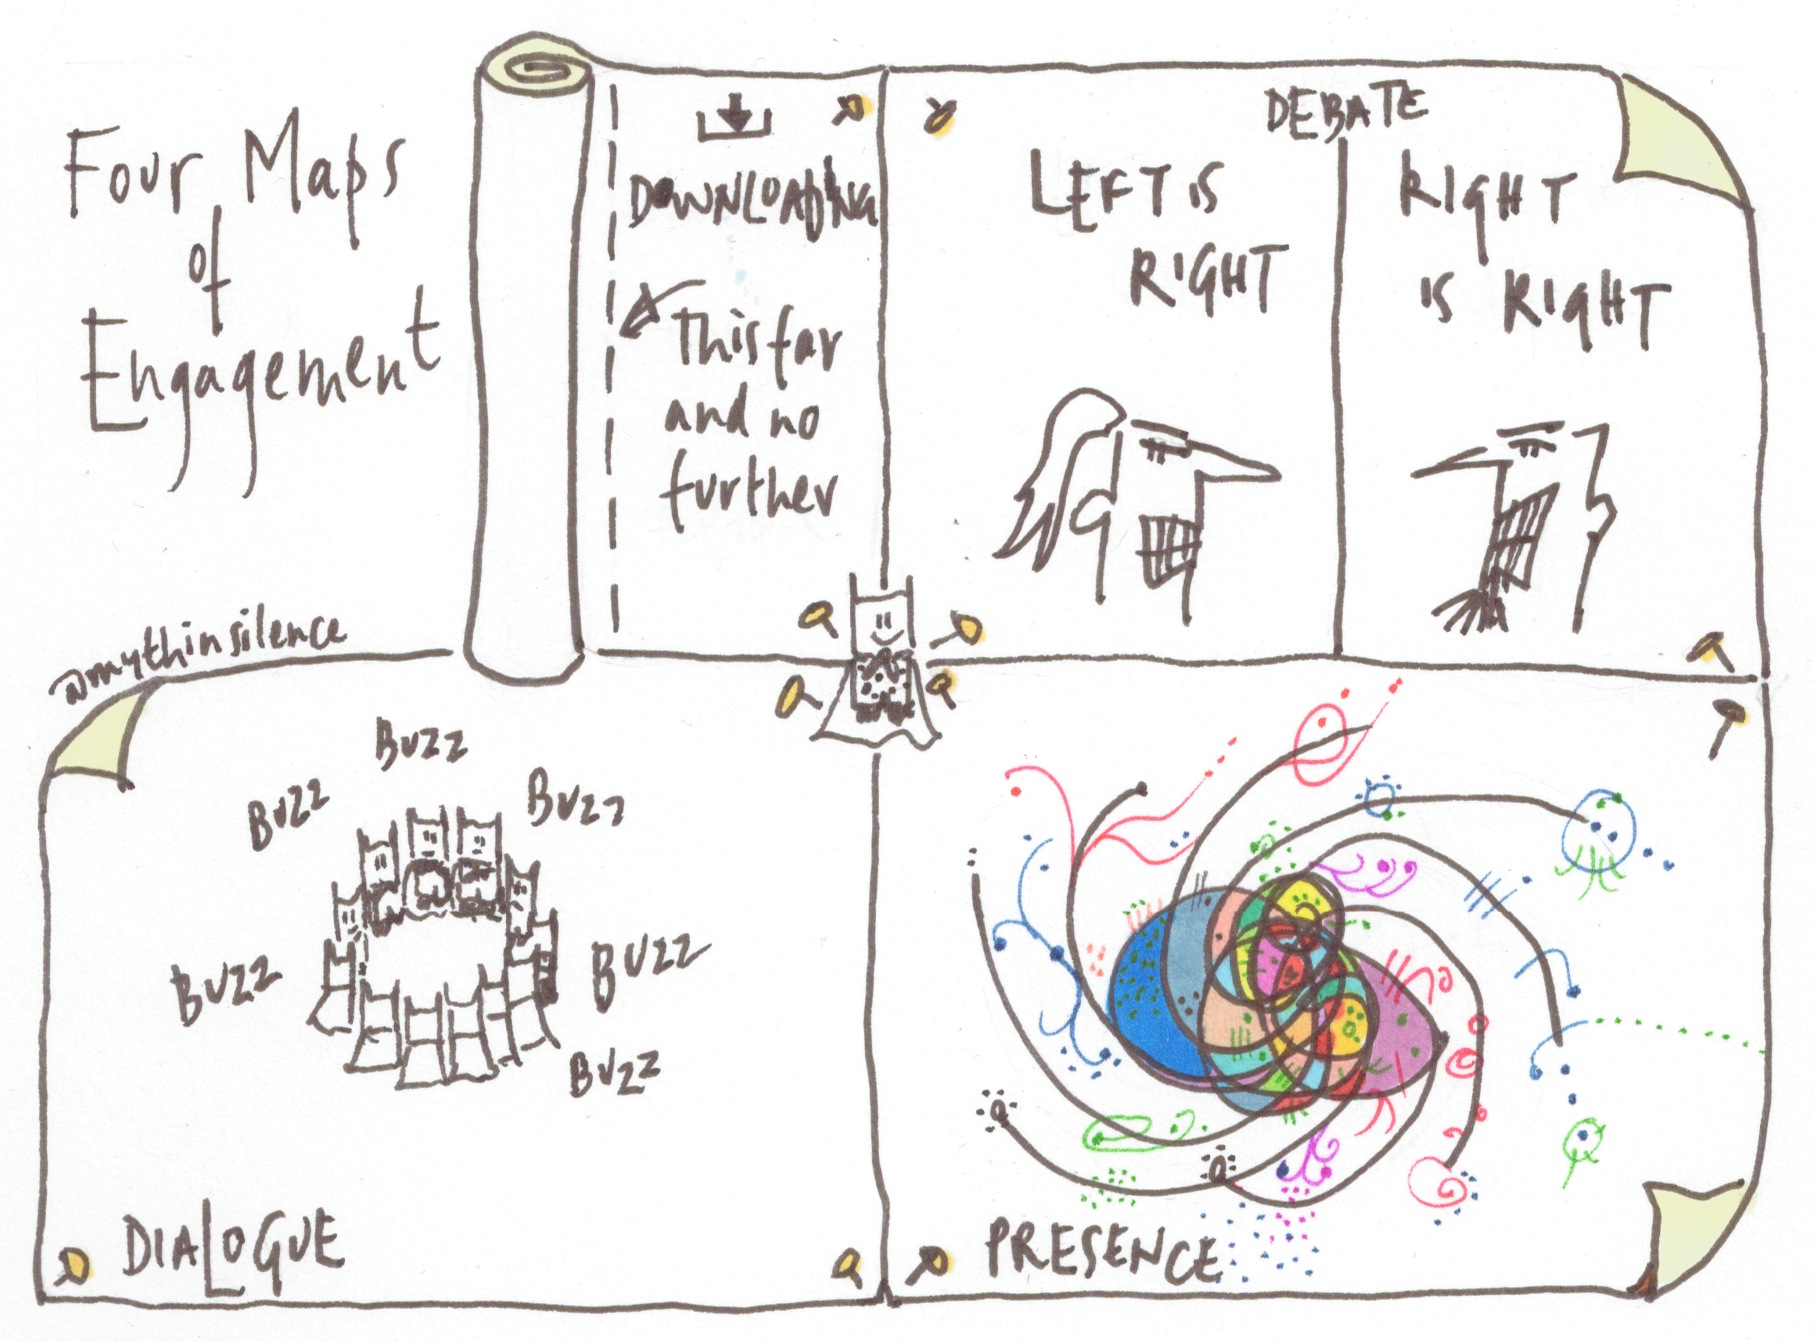 Four Maps
of
Engagement
@mythinsilence
DOWNLOADING
This far
and no
further
DEBATE
LEFT IS
RIGHT
RIGHT
IS RIGHT
BUZZ
BUZZ
BUZZ
BUZZ
BUZZ
BUZZ
DIALOGUE
PRESENCE